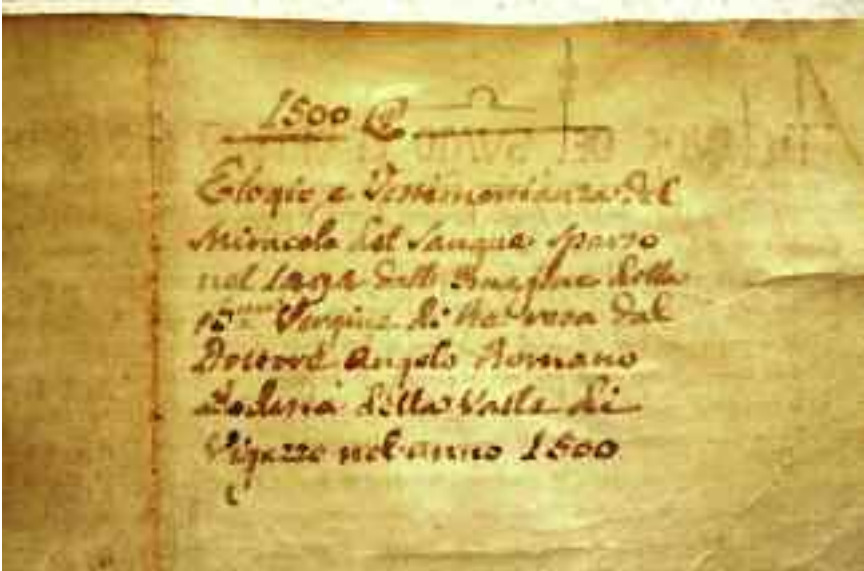 1500
Elogio e Testimonianza del
Miracolo del Sangue sparso
nel 1494 dall Imagine della
Vergine di Re
Dottore Angelo Romano
della Valle di
Vigezzo nel anno 1500